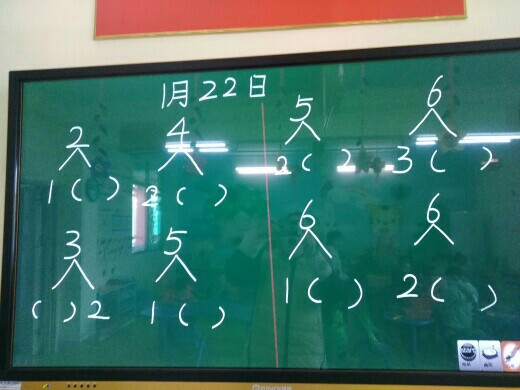 1月22日
2 4
1( ) 2( )
3 5
( )2 1( )
5 6
2( ) 3( )
6 6
1( ) 2( )